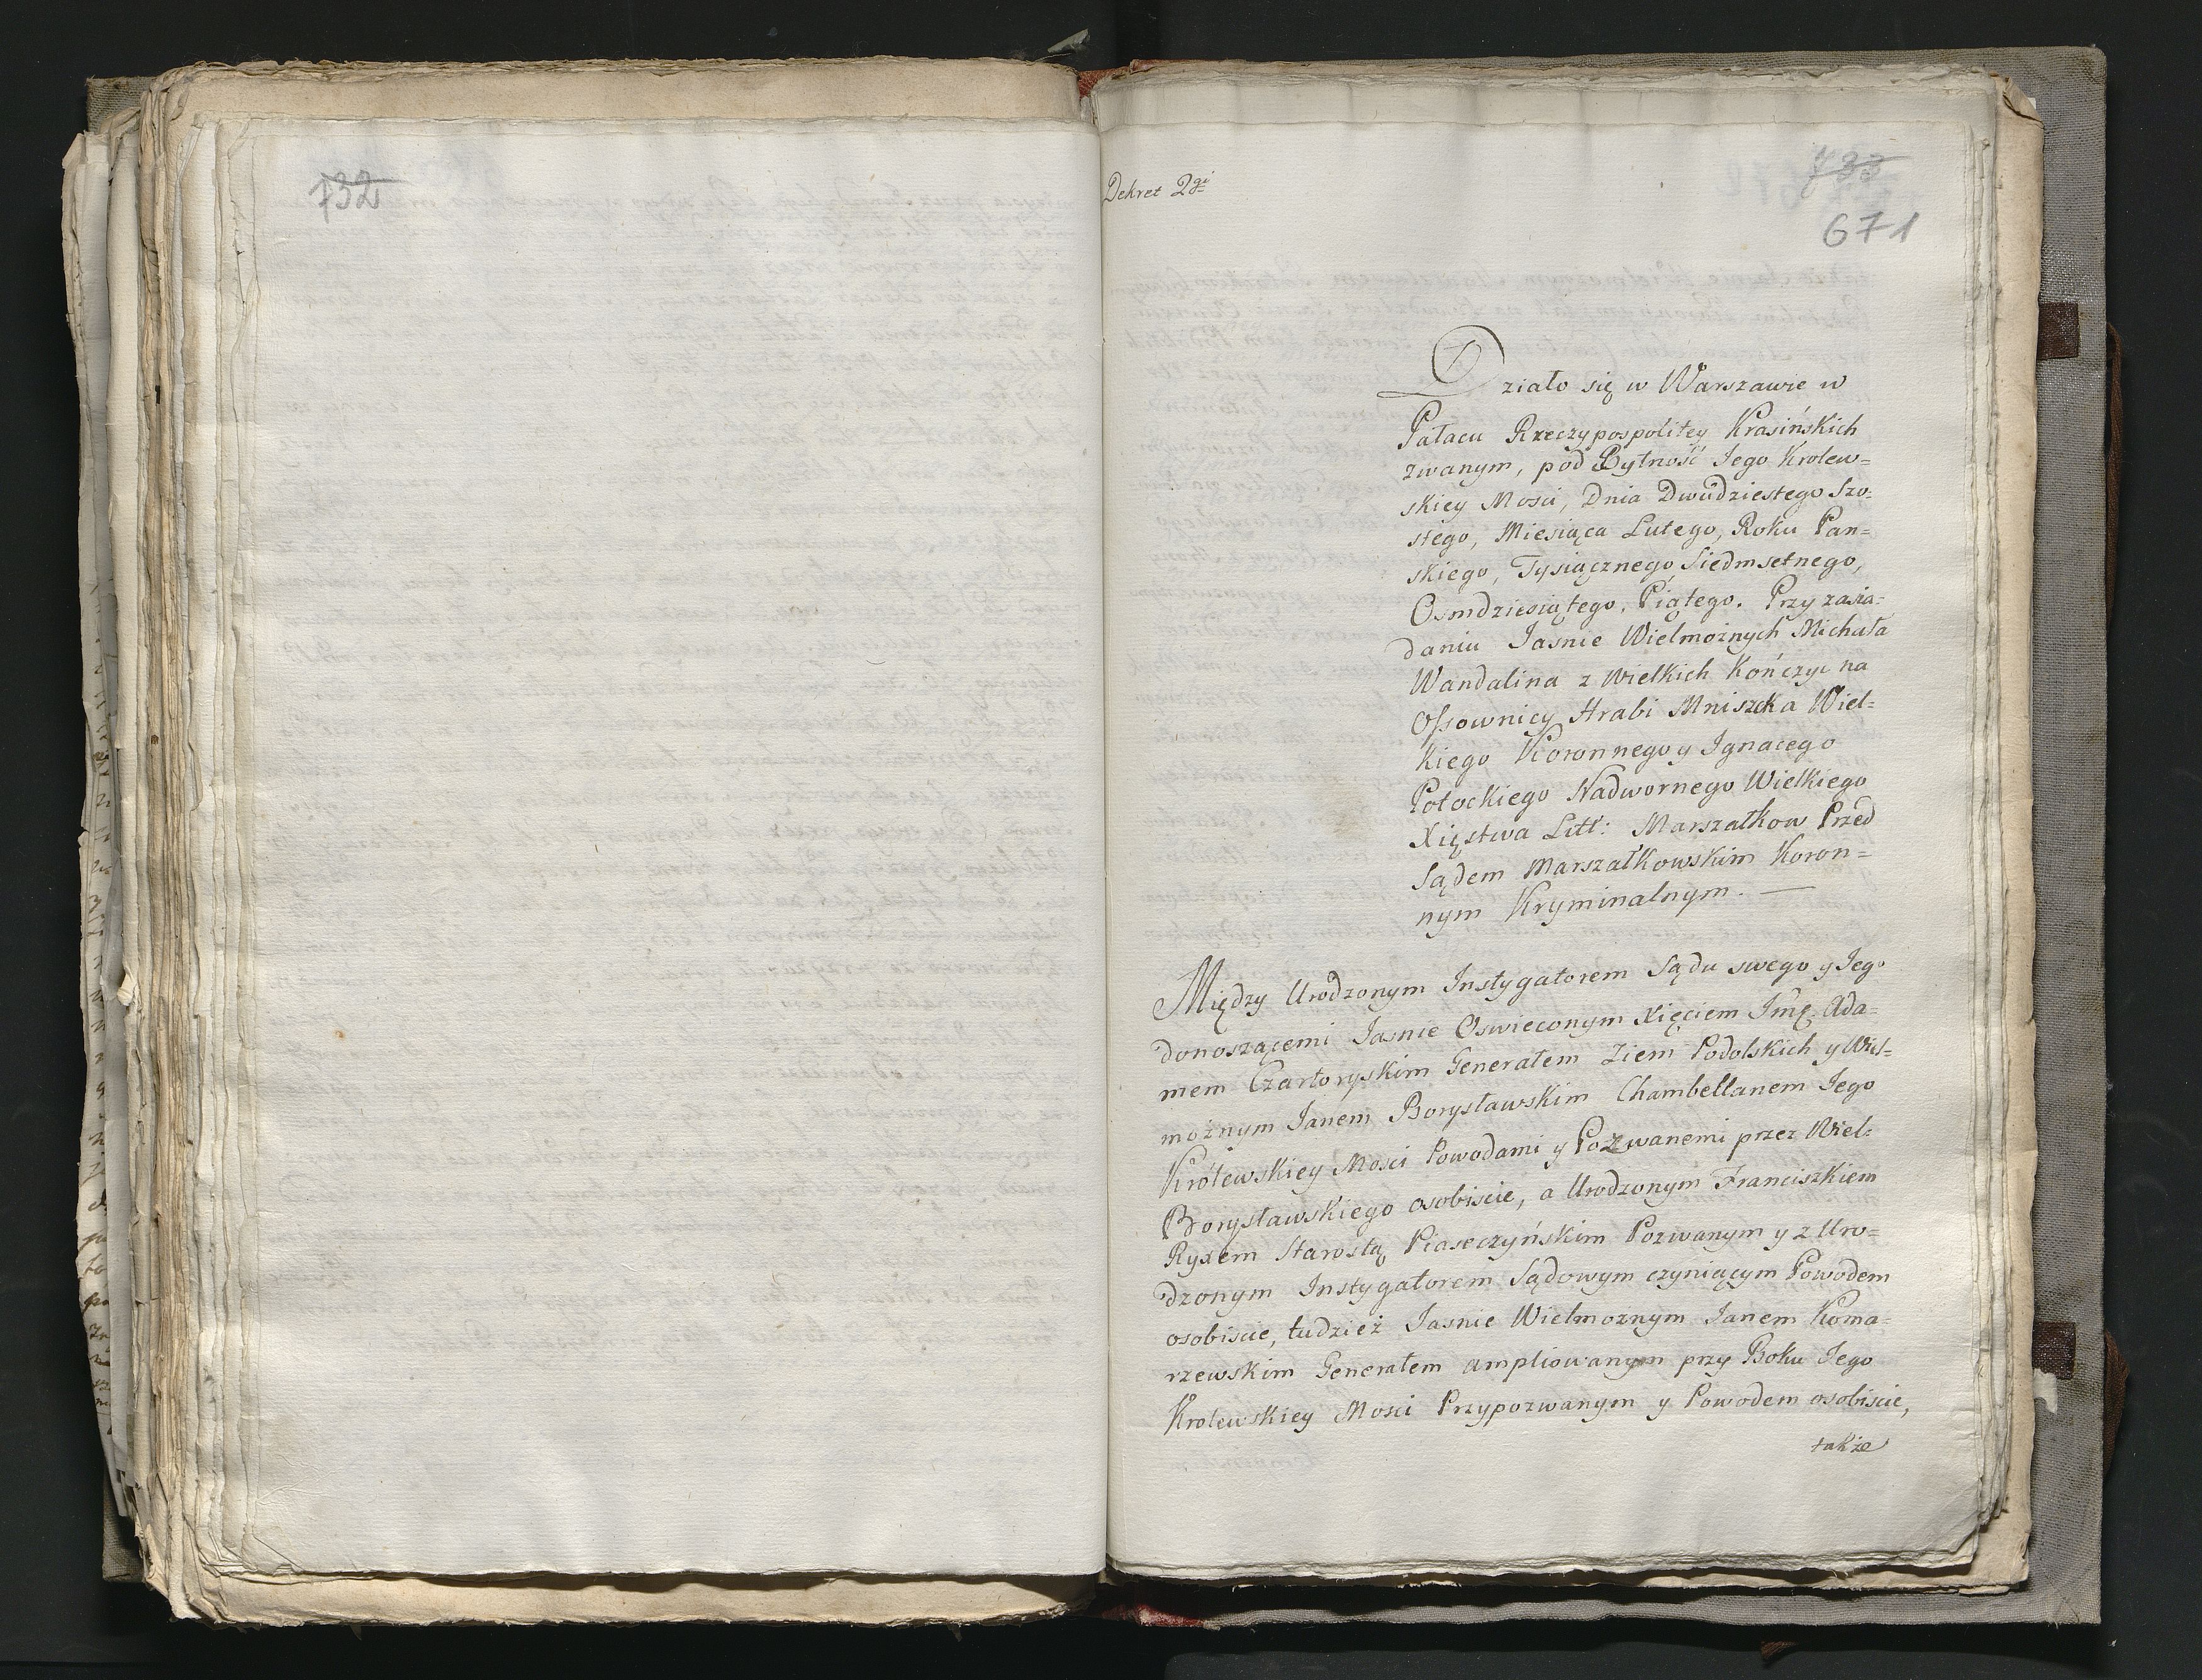 732
Dekret 2gi
733
671
Działo się w Warszawie w
Pałacu Rzeczypospolitey Krasińskich
zwanym, pod Bytność Jego Krolew=
skiey Mosci, Dnia Dwudziestego Szo=
stego, Miesiąca Lutego, Roku Pan=
skiego, Tysiącznego Siedmsetnego,
Osmdziesiątego, Piątego. Przy zasia=
daniu Jasnie Wielmożnych Michała
Wandalina z Wielkich Kończyc na
Ossownicy Hrabi Mniszcha Wiel=
kiego Koronnego y Jgnacego
Potockiego Nadwornego Wielkiego
Xięstwa Litt: Marszałkow Przed
Sądem Marszałkowskim Koron=
nym Kryminalnym. —
Między Urodzonym Instygatorem Sądu swego y Jego
donoszącemi Jasnie Oswieconym Xięciem Jmć Ada=
mem Czartoryskim Generałem Ziem Podolskich y Wiel=
możnym Janem Borysławskim Chambellanem Jego
Królewskiey Mosci Powodami y Pozwanemi przez Wiel=
Borysławskiego osobiscie, a Urodzonym Franciszkiem
Ryxem Starostą Piaseczyńskim Pozwanym y z Uro=
dzonym Instygatorem Sądowym czyniącym Powodem
osobiscie, tudzież Jasnie Wielmożnym Janem Koma=
rzewskim Generałem ampliowanym przy Boku Jego
Krolewskiey Mosci Przypozwanym y Powodem osobiscie,
także